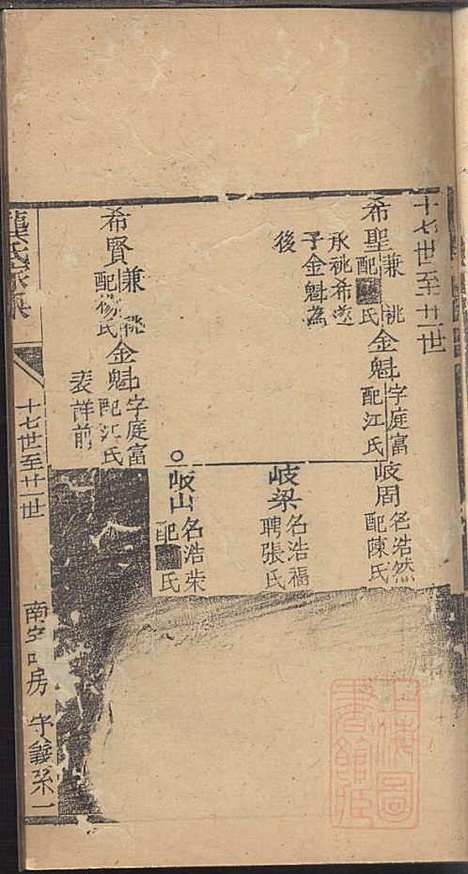 十七世至廿一世
希聖 兼祧 配 氏
承祧希
子金魁為
後
金魁 字庭富 配江氏
岐周 名浩然 配陳氏
岐梁 名浩福 聘張氏
岐山 名浩榮 配 氏
希賢 兼祧 配楊氏
金魁 字庭富 配江氏
表詳前
氏家乘
十七世至廿一世
南 房 守義系一
上海圖書館藏